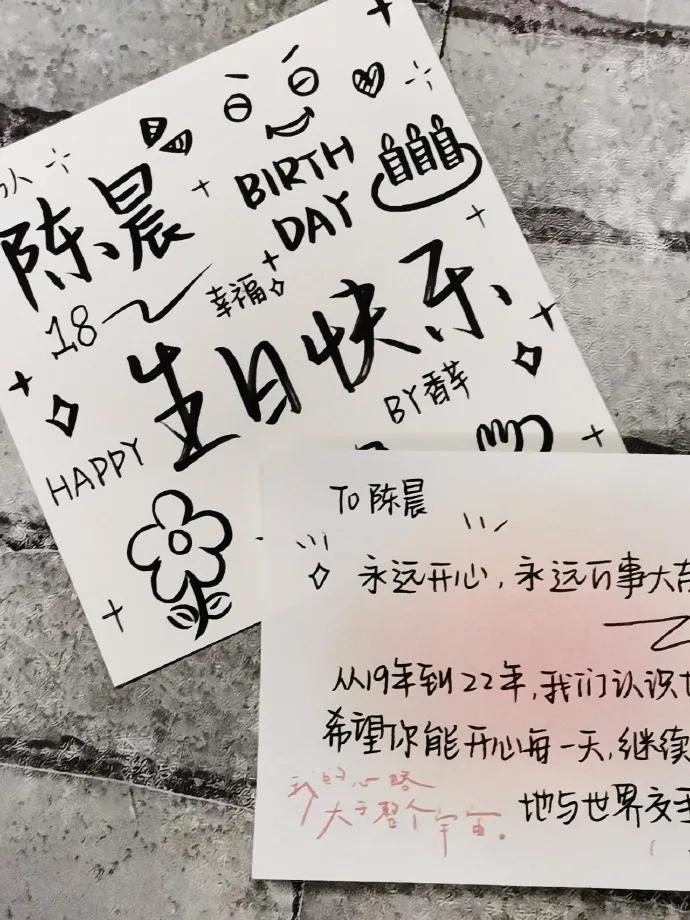 陈晨
BIRTH
DAY
18
幸福
生日快乐
BY香芋
HAPPY
To 陈晨
永远开心,永远万事大吉
从19年到22年,我们认识
希望你能开心每一天,继续
我的心路
大于整个宇宙。
地与世界交手